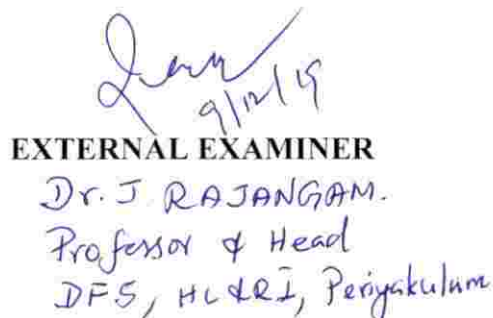 9/12/19
EXTERNAL EXAMINER
Dr. J. RAJANGAM.
Professor & Head
DFS, HC&RI, Periyakulam